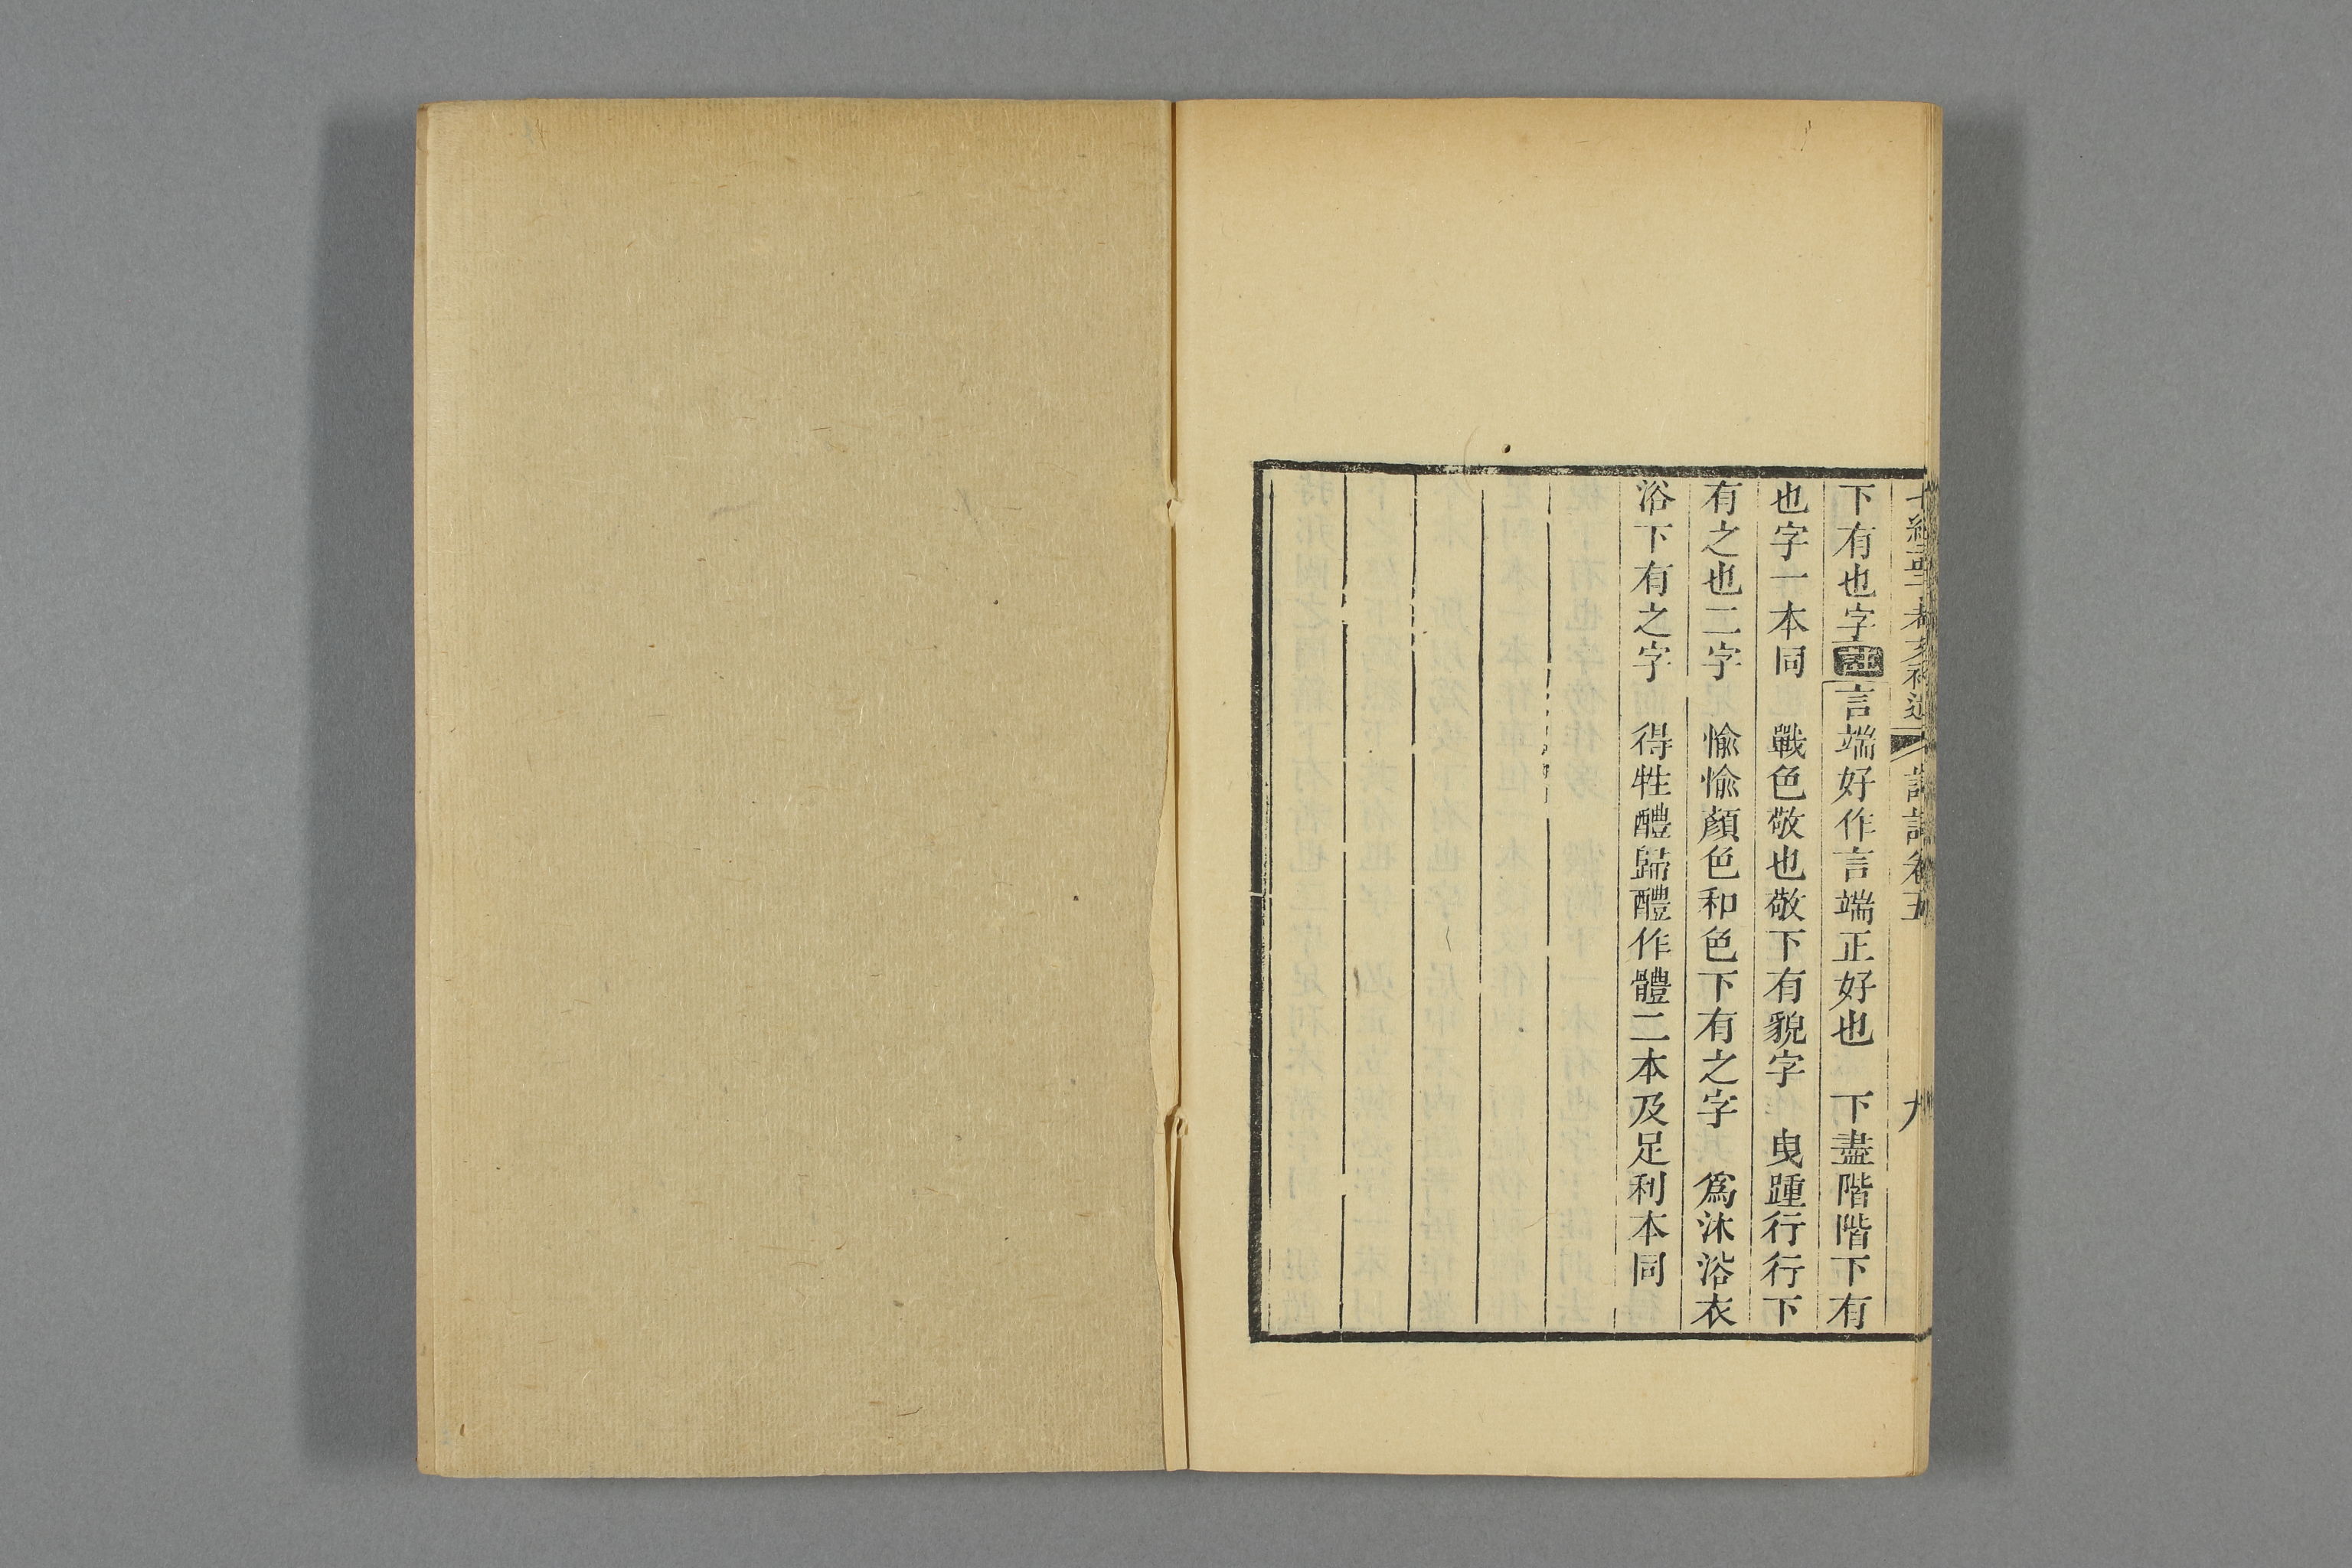 七經孟子考文補遺 論語卷五 九
下有也字註言端好作言端正好也　下盡階階下有
也字一本同　戰色敬也敬下有貌字　曳踵行行下
有之也二字　愉愉顏色和色下有之字　為沐浴衣
浴下有之字　得牲醴歸醴作體二本及足利本同